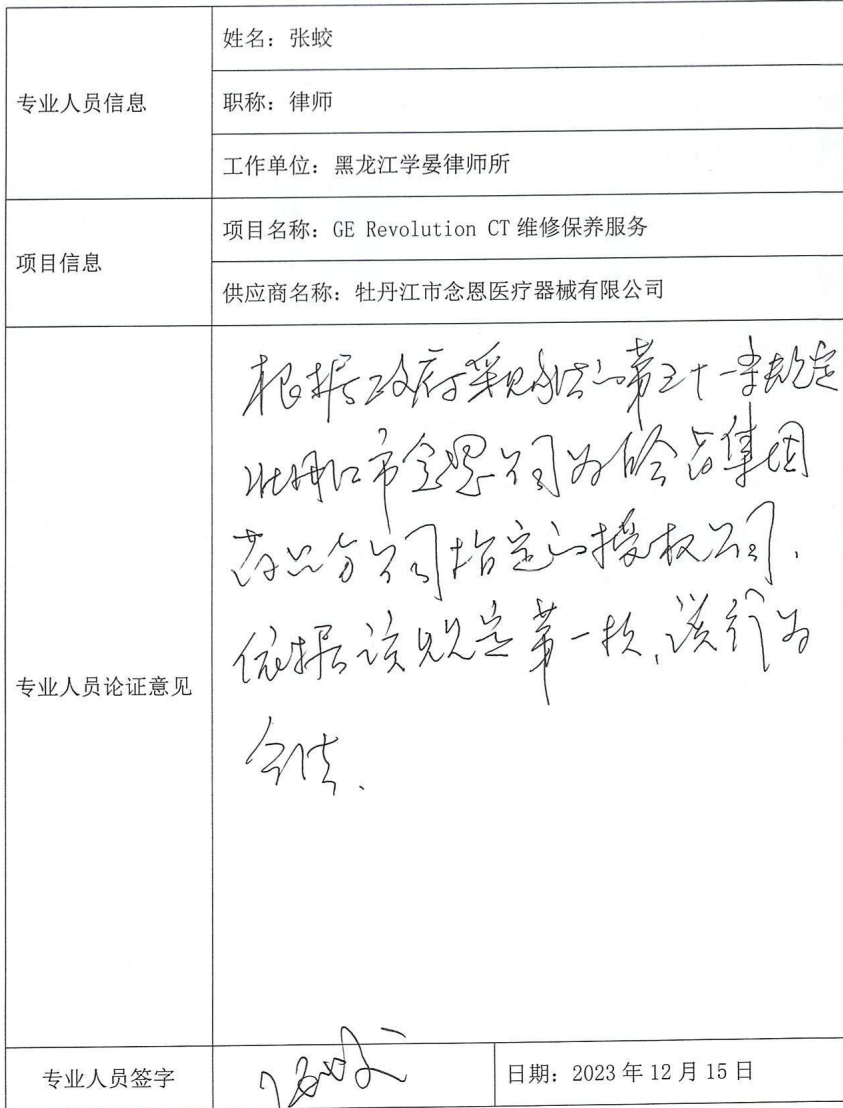 姓名：张蛟
专业人员信息
职称：律师
工作单位：黑龙江学晏律师所
项目信息
项目名称：GE Revolution CT 维修保养服务
供应商名称：牡丹江市念恩医疗器械有限公司
专业人员论证意见
根据政府采购法的第三十一条规定
牡丹江市念恩公司为哈药集团
药品分公司指定的授权公司.
依据该规定第一款,该行为
合法.
专业人员签字
张蛟
日期：2023 年 12 月 15 日